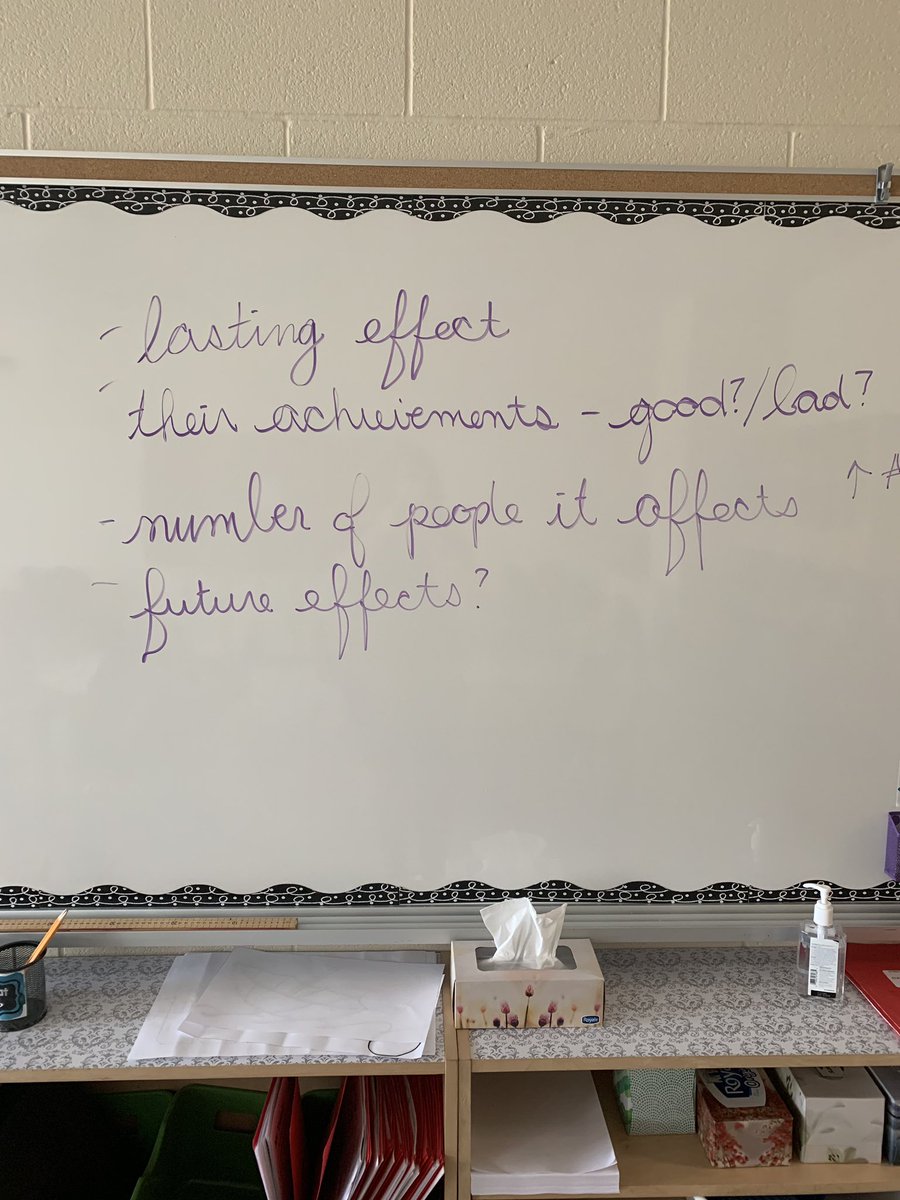 - lasting effect
- their achievements - good?/bad?
- number of people it affects ↑ #
- future effects?
Royale
Royale